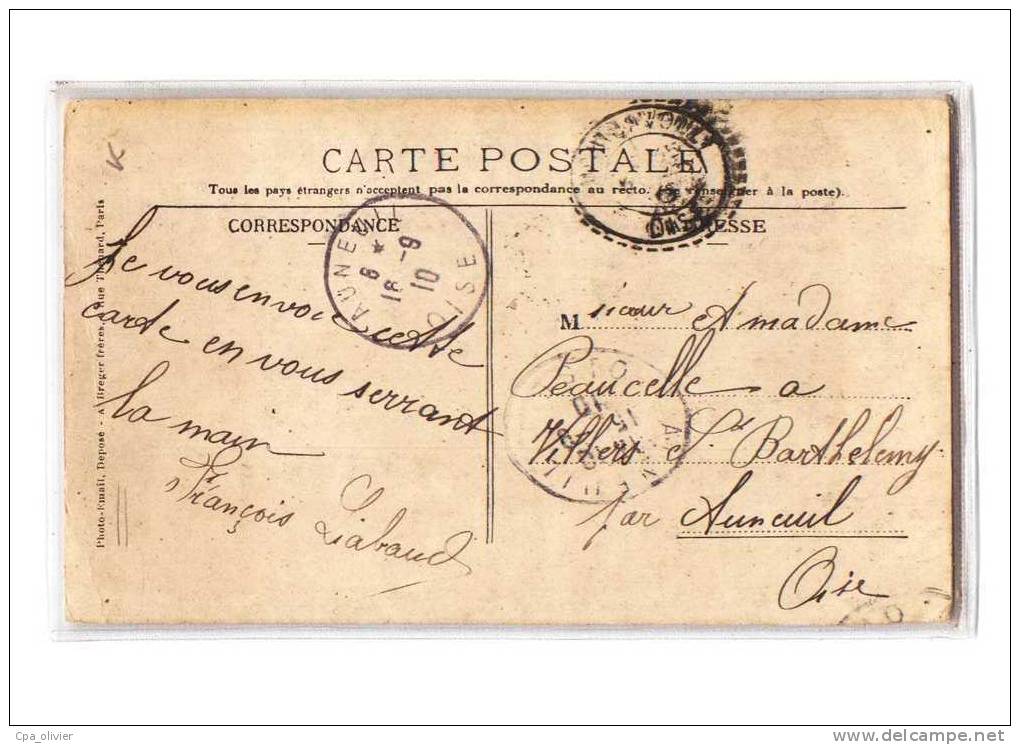 K
CARTE POSTALE
Tous les pays étrangers n'acceptent pas la correspondance au recto. (Se renseigner à la poste).
CORRESPONDANCE
ADRESSE
AUNEUIL
OISE
8
18 -9
10
Je vous envoie cette
carte en vous serrant
la main
François Liabaud
Monsieur et madame
Peaucelle a
Villers St Barthelemy
par Auneuil
Oise
AUNEUIL
OISE
Photo-Email, Deposé - A. Breger frères, 9 Rue Thénard, Paris
Cpa_olivier
delcampe.net